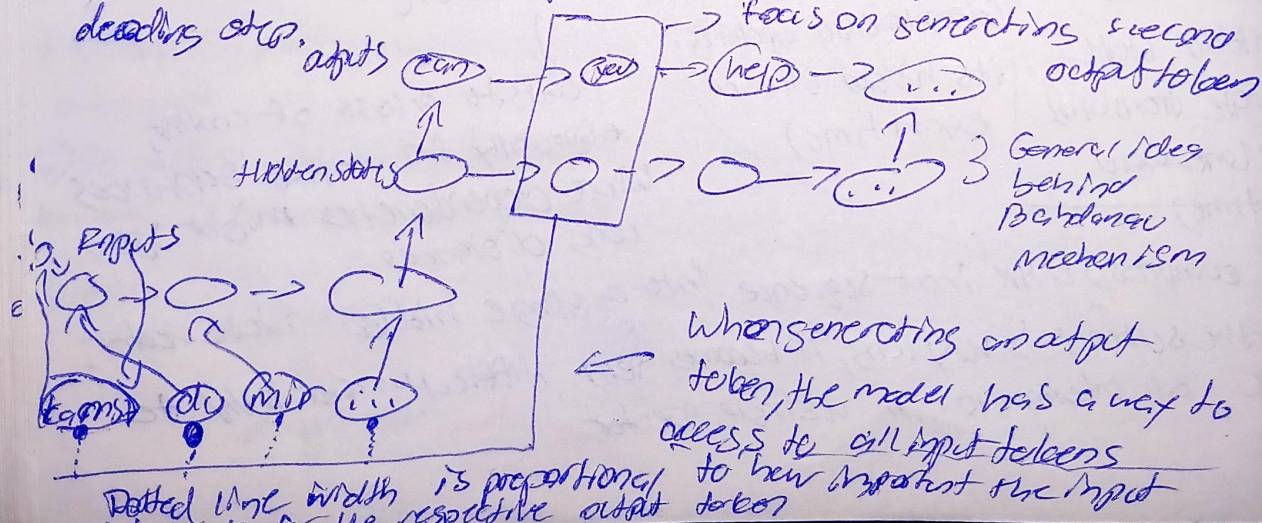 decoding step.
focus on generating second
output token
outputs can you help ...
Hidden states ... } General idea
behind
Bahdanau
mechanism
Inputs
kanns du mir ...
When generating an output
token, the model has a way to
access to all input tokens
Dotted line width is proportional to how important the input
the respective output token